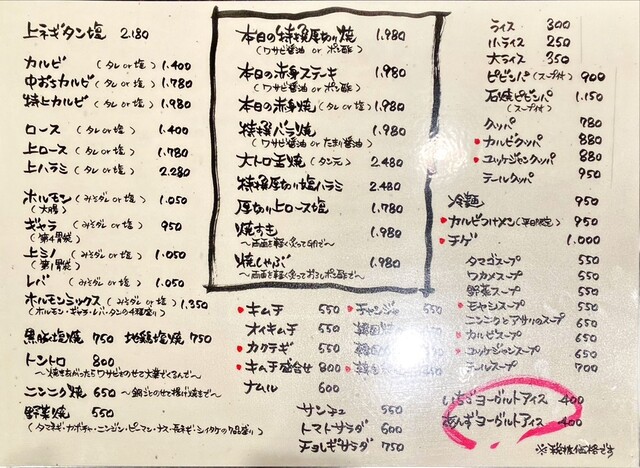 上ネギタン塩 2.180
カルビ (タレ or 塩) 1.400
中おちカルビ (タレ or 塩) 1.780
特上カルビ (タレ or 塩) 1.980
ロース (タレ or 塩) 1.400
上ロース (タレ or 塩) 1.780
上ハラミ (タレ or 塩) 2.280
ホルモン (みそダレ or 塩) 1.050
(大腸)
ギャラ (みそダレ or 塩) 950
(第4胃袋)
上ミノ (みそダレ or 塩) 1.050
(第1胃袋)
レバ (みそダレ or 塩) 1.050
ホルモンミックス (みそダレ or 塩) 1.350
(ホルモン・ギャラ・レバ・タンの4種盛り)
黒豚塩焼 750 地鶏塩焼 750
トントロ 800
〜焼きあがったらワサビをのせて大葉でくるんで〜
ニンニク焼 650 〜鍋ごとのせて揚げ焼きで〜
野菜焼 650
(タマネギ・カボチャ・ニンジン・ピーマン・ナス・長ネギ・シイタケの7品盛り)
本日の特撰厚切り焼 1.980
(ワサビ醤油 or ポン酢)
本日の赤身ステーキ 1.980
(ワサビ醤油 or ポン酢)
本日の赤身焼 (タレ or 塩) 1.980
特撰バラ焼 1.980
(ワサビ醤油 or たまり醤油)
大トロ玉焼 (タン元) 2.480
特撰厚切り塩ハラミ 2.480
厚切り上ロース塩 1.780
焼すき 1.980
〜両面を軽く炙って卵で〜
焼しゃぶ 1.980
〜両面を軽く炙っておろしポン酢で〜
キムチ 550
オイキムチ 550
カクテギ 550
キムチ盛合せ 800
ナムル 600
チャンジャ 550
サンチュ 550
トマトサラダ 600
チョレギサラダ 750
ライス 300
小ライス 250
大ライス 350
ビビンバ (スープ付) 900
石焼ビビンバ 1.150
(スープ付)
クッパ 780
カルビクッパ 880
ユッケジャンクッパ 880
テールクッパ 950
冷麺 950
カルビつけメン (平日限定) 950
チゲ 1.000
タマゴスープ 550
ワカメスープ 550
野菜スープ 550
モヤシスープ 550
ニンニクとアサリのスープ 650
カルビスープ 650
ユッケジャンスープ 650
テールスープ 700
いちごヨーグルトアイス 400
あんずヨーグルトアイス 400
※税抜価格です